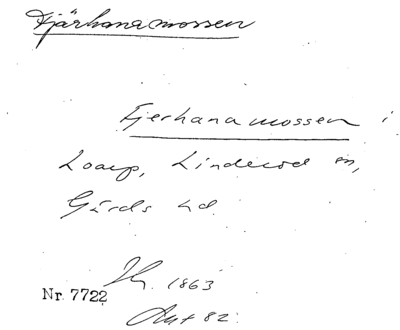 Fjärhanamossen
Fjerhanamossen i
Loarp, Linderöd sn,
Gärds hd.
1863
Nr. 7722
Ant 82.